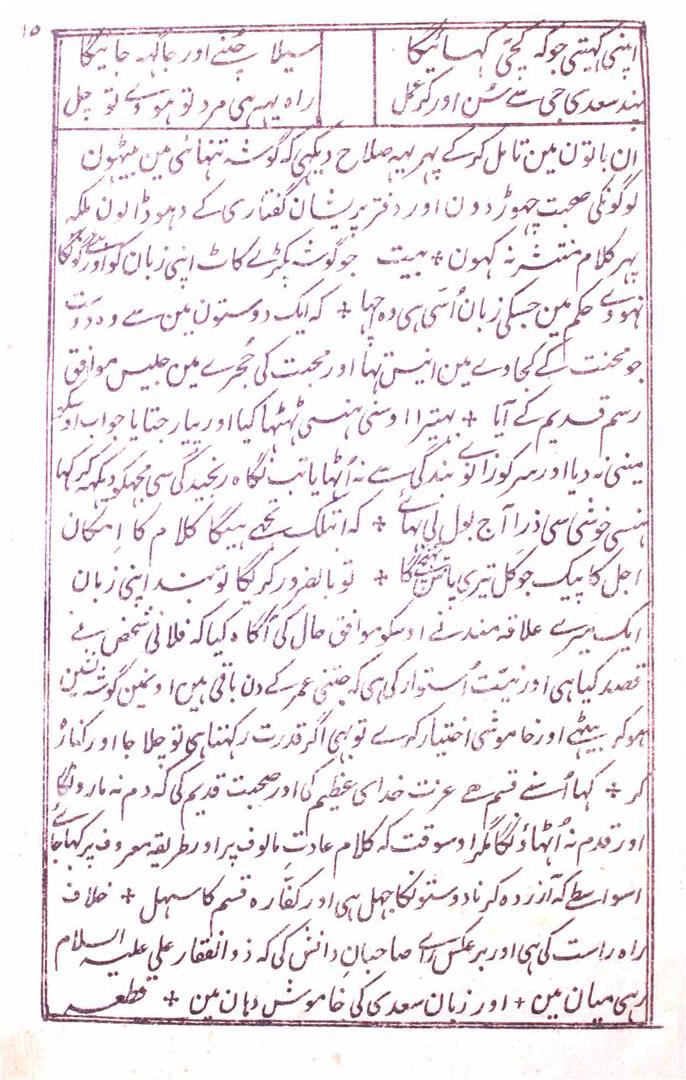 ۱۵
اپنی کہیتی جو کہ کچی کہائیگا سیلا چننے اور جاگہہ جائیگا
پند سعدی جی سے سُن اور کر عمل راہ یہہ ہی مرد تو ہووے تو چل
ان باتون مین تامل کرکے پہر یہہ صلاح دیکہی کہ گوشہ تنہائی مین بیٹہون
لوگونکی صحبت چہوڑ دون اور دفتر پریشان گفتاری کے دہو ڈالون بلکہ
پہر کلام منتشر نہ کہون + بیت جو گوشہ پکڑے کاٹ اپنی زبان کو اور گونگا
نہووے حکم مین جسکی زبان اُسی ہی وہ اچہا + کہ ایک دوستون مین سے وہ دوست
جو محنت کے کجاوے مین انیس تہا اور محبت کی حُجرے مین جلیس موافق
رسم قدیم کے آیا + بہتیرا اوسنی ہنسی ٹہٹہا کیا اور پیار جتایا جواب اوسکو
مینی نہ دیا اور سر کو زانوئے بندگی سے نہ اُٹہایا تب نگاہ رنجیدگی سی مجہکو دیکہہ کر کہا
ہنسی خوشی سی ذرا آج بول لی بہائے + کہ ابتلک تجہے ہیگا کلام کا اِمکان
اجل کا پیک جو کل تیری پاس پہنچے گا + تو بالضرور کریگا تو بند اپنی زبان
ایک میرے علاقہ مند نے اوسکو موافق حال کی آگاہ کیا کہ فلانی شخص نے
قصد کیا ہی اور نیّت اُستوار کی ہی کہ جتنی عمر کے دن باقی ہین اونمین گوشہ نشین
ہو کر بیٹہے اور خاموشی اختیار کرے تو بہی اگر قدرت رکہتا ہی تو چلا جا اور کنارہ
کر + کہا اُسنے قسم ہے عزت خدای عظیم کی اور صحبت قدیم کی کہ دم نہ مارونگا
اور قدم نہ اُٹہاؤنگا مگر اوسوقت کہ کلام عادتِ مالوف پر اور طریقہ معروف پر کہا جائے
اسواسطے کہ آزردہ کرنا دوستونکا جہل ہی اور کفّارہ قسم کا سہل + خلاف
راہ راست کی ہی اور برعکس رائے صاحبانِ دانش کی کہ ذوالفقار علی علیہ السلام
رہی میان مین + اور زبان سعدی کی خاموش دہان مین + قطعہ